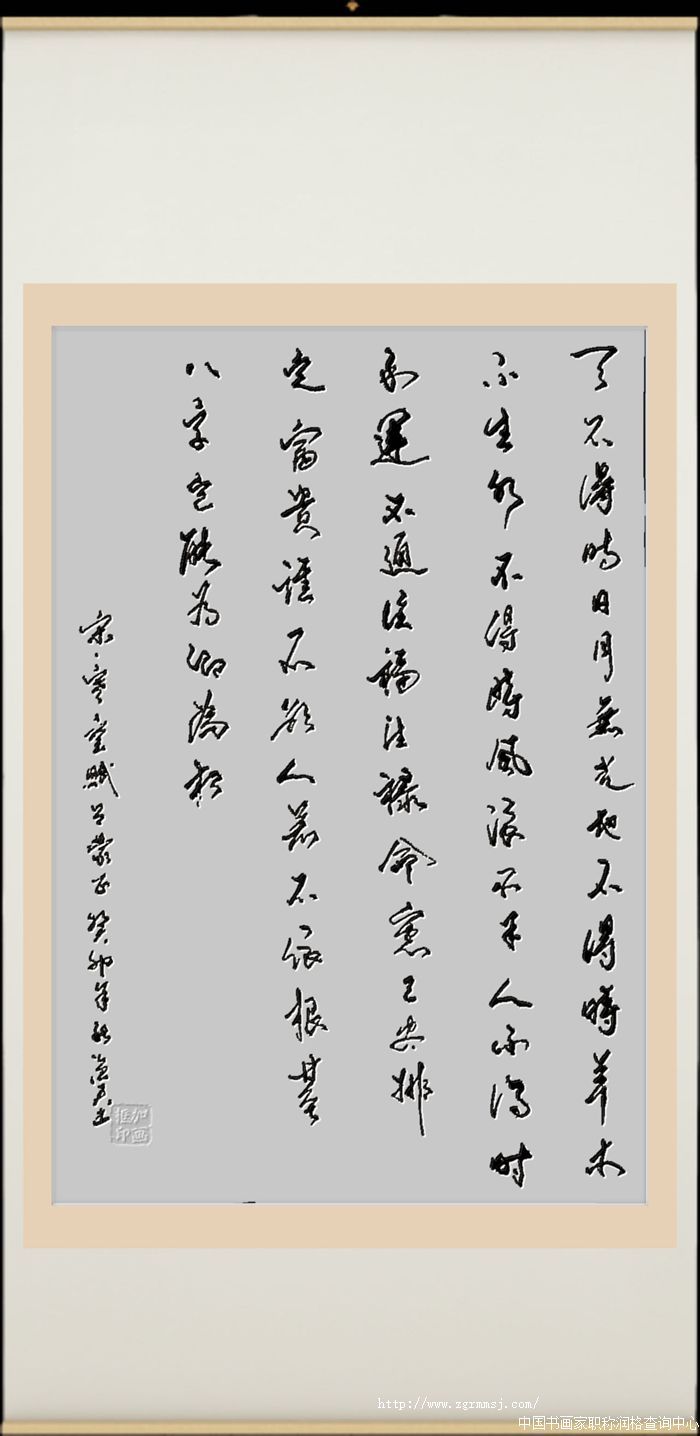 天不得時日月無光地不得時草木
不生水不得時風浪不平人不得时
利運不通注福注禄命里已安排
定富贵誰不欲人若不依根基
八字岂能为卿為相
宋寒窑赋吕蒙正癸卯年秋
加画框印
http://www.zgrmmsj.com/
中国书画家职称润格查询中心